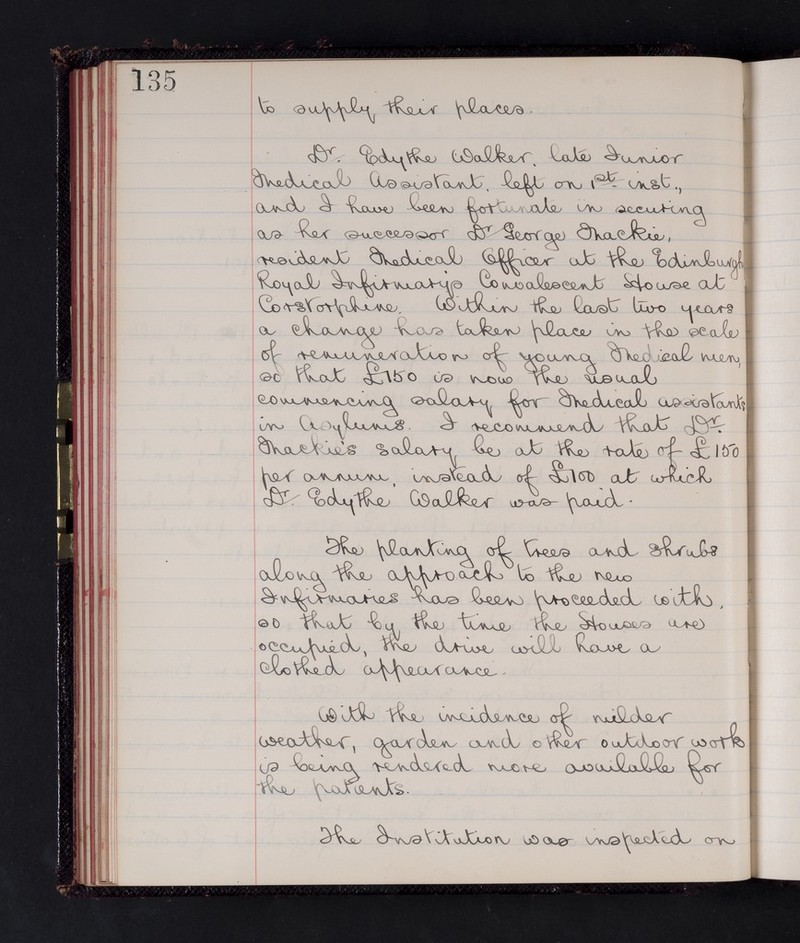 135
to supply their places.
Dr. Edythe Walker, late Junior
Medical Assistant, left on 1st inst.,
and I have been fortunate in securing
as her successor Dr George Mackie,
resident Medical Officer at the Edinburgh
Royal Infirmary's Convalescent House at
Corstorphine. Within the last two years
a change has taken place in the scale
of remuneration of young Medical men,
so that £150 is now the usual
commencing salary for Medical assistants
in Asylums. I recommend that Dr.
Mackie's salary be at the rate of £150
per annum, instead of £100 at which
Dr. Edythe Walker was paid.
The planting of trees and shrubs
along the approach to the new
Infirmaries has been proceeded with,
so that by the time the Houses are
occupied, the drive will have a
clothed appearance.
With the incidence of milder
weather, garden and other outdoor work
is being rendered more available for
the patients.
The Institution was inspected on